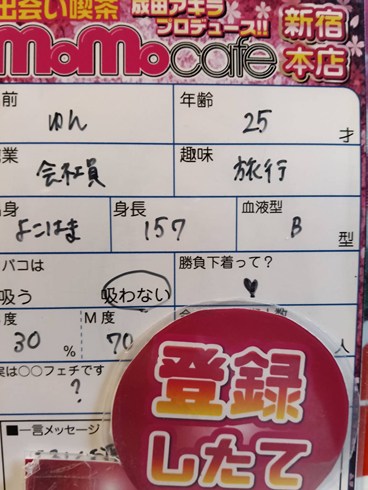 出会い喫茶 成田アキラ
プロデュース!! 新宿
MoMocafe 本店
前 年齢
ゆん 25 才
業 趣味
会社員 旅行
身 身長 血液型
よこはま 157 B 型
バコは 勝負下着って?
吸う 吸わない ♥
度 M度
30 % 70 人
実は○○フェチです
?
■一言メッセージ
登録
したて